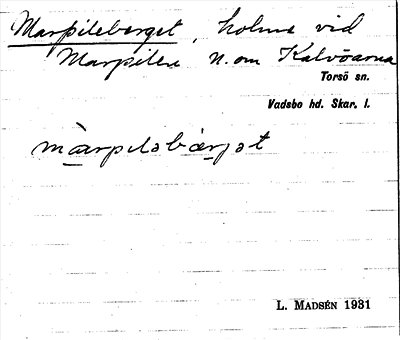 Marpileberget, holme vid
Marpilen N. om Kalvöarna
Torsö sn.
Vadsbo hd. Skar. l.
L. MADSÉN 1931